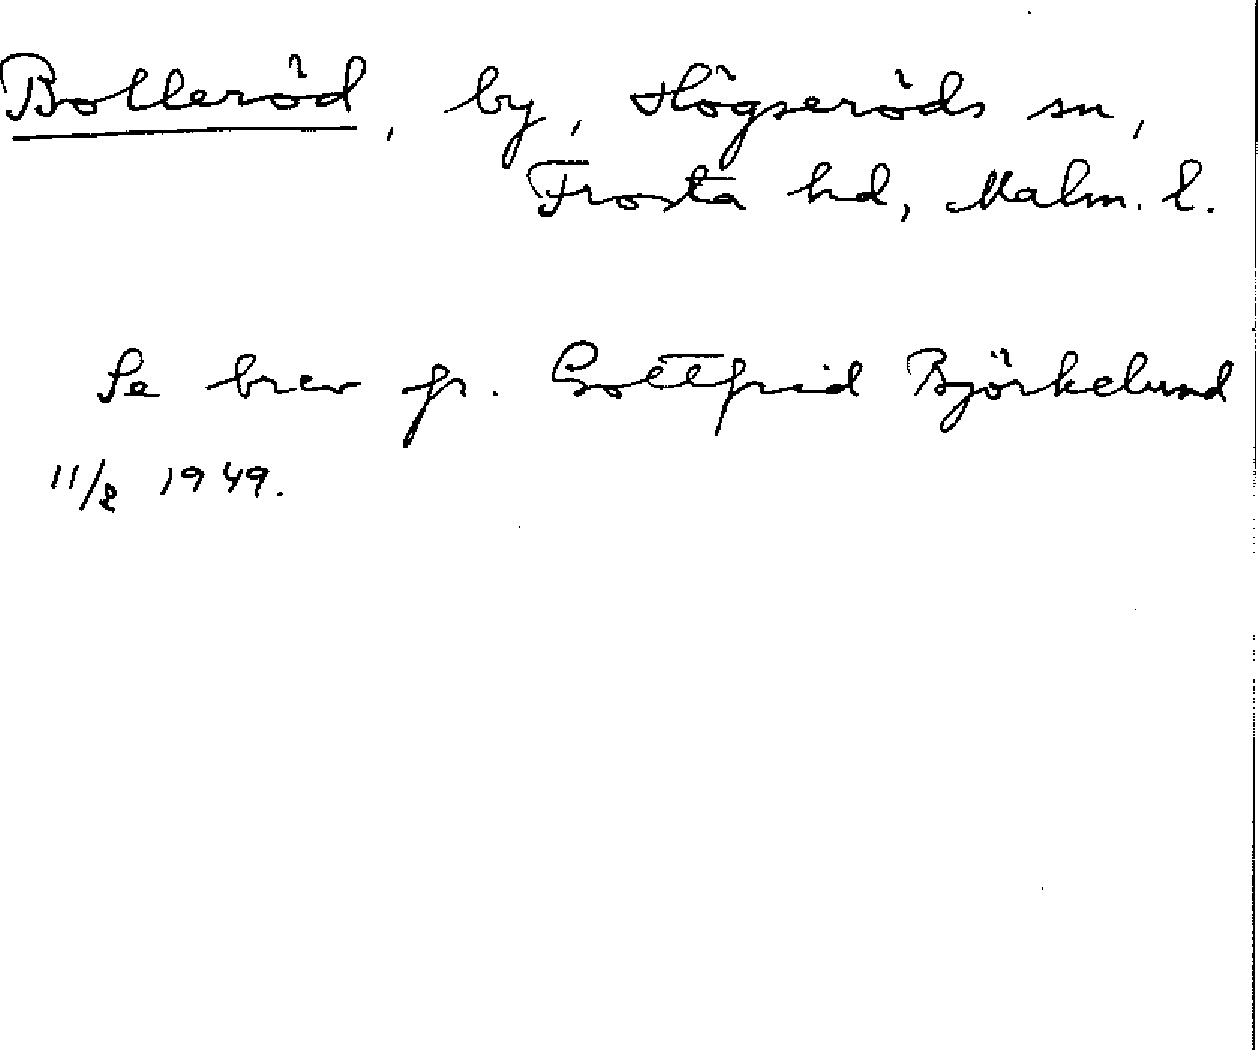 Bolleröd, by, Högseröds sn,
Frosta hd, Malm. l.
Se brev fr. Gottfrid Björkelund
11/2 1949.